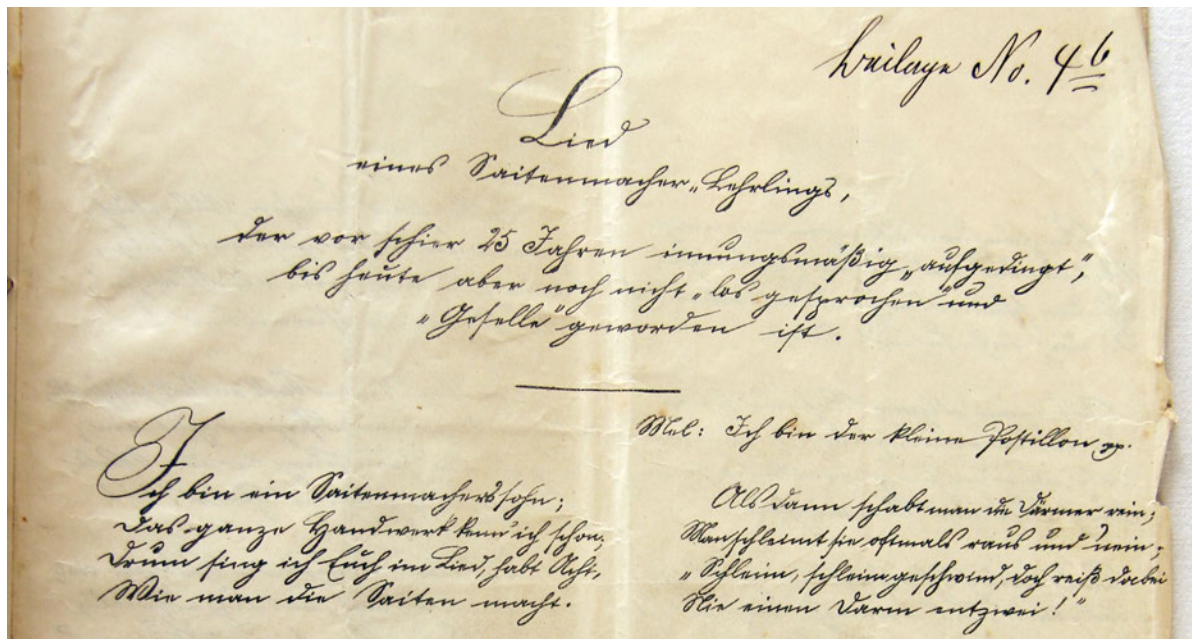 Beilage No. 4b
Lied
eines Saitenmacher-Lehrlings,
der vor schier 25 Jahren innungsmäßig „aufgedingt“,
bis heute aber noch nicht „los gesprochen“ und
„Geselle“ geworden ist.
Mel: Ich bin der kleine Postillon pp.
Ich bin ein Saitenmacherssohn;
Das ganze Handwerk kenn' ich schon,
Drum sing ich Euch im Lied, habt Acht,
Wie man die Saiten macht.
Als dann schabt man die Därmer rein;
Man schleimt sie oftmals raus und 'nein;
„Schleim, schleim geschwind, doch reiß dabei
Nie einen Darm entzwei!“